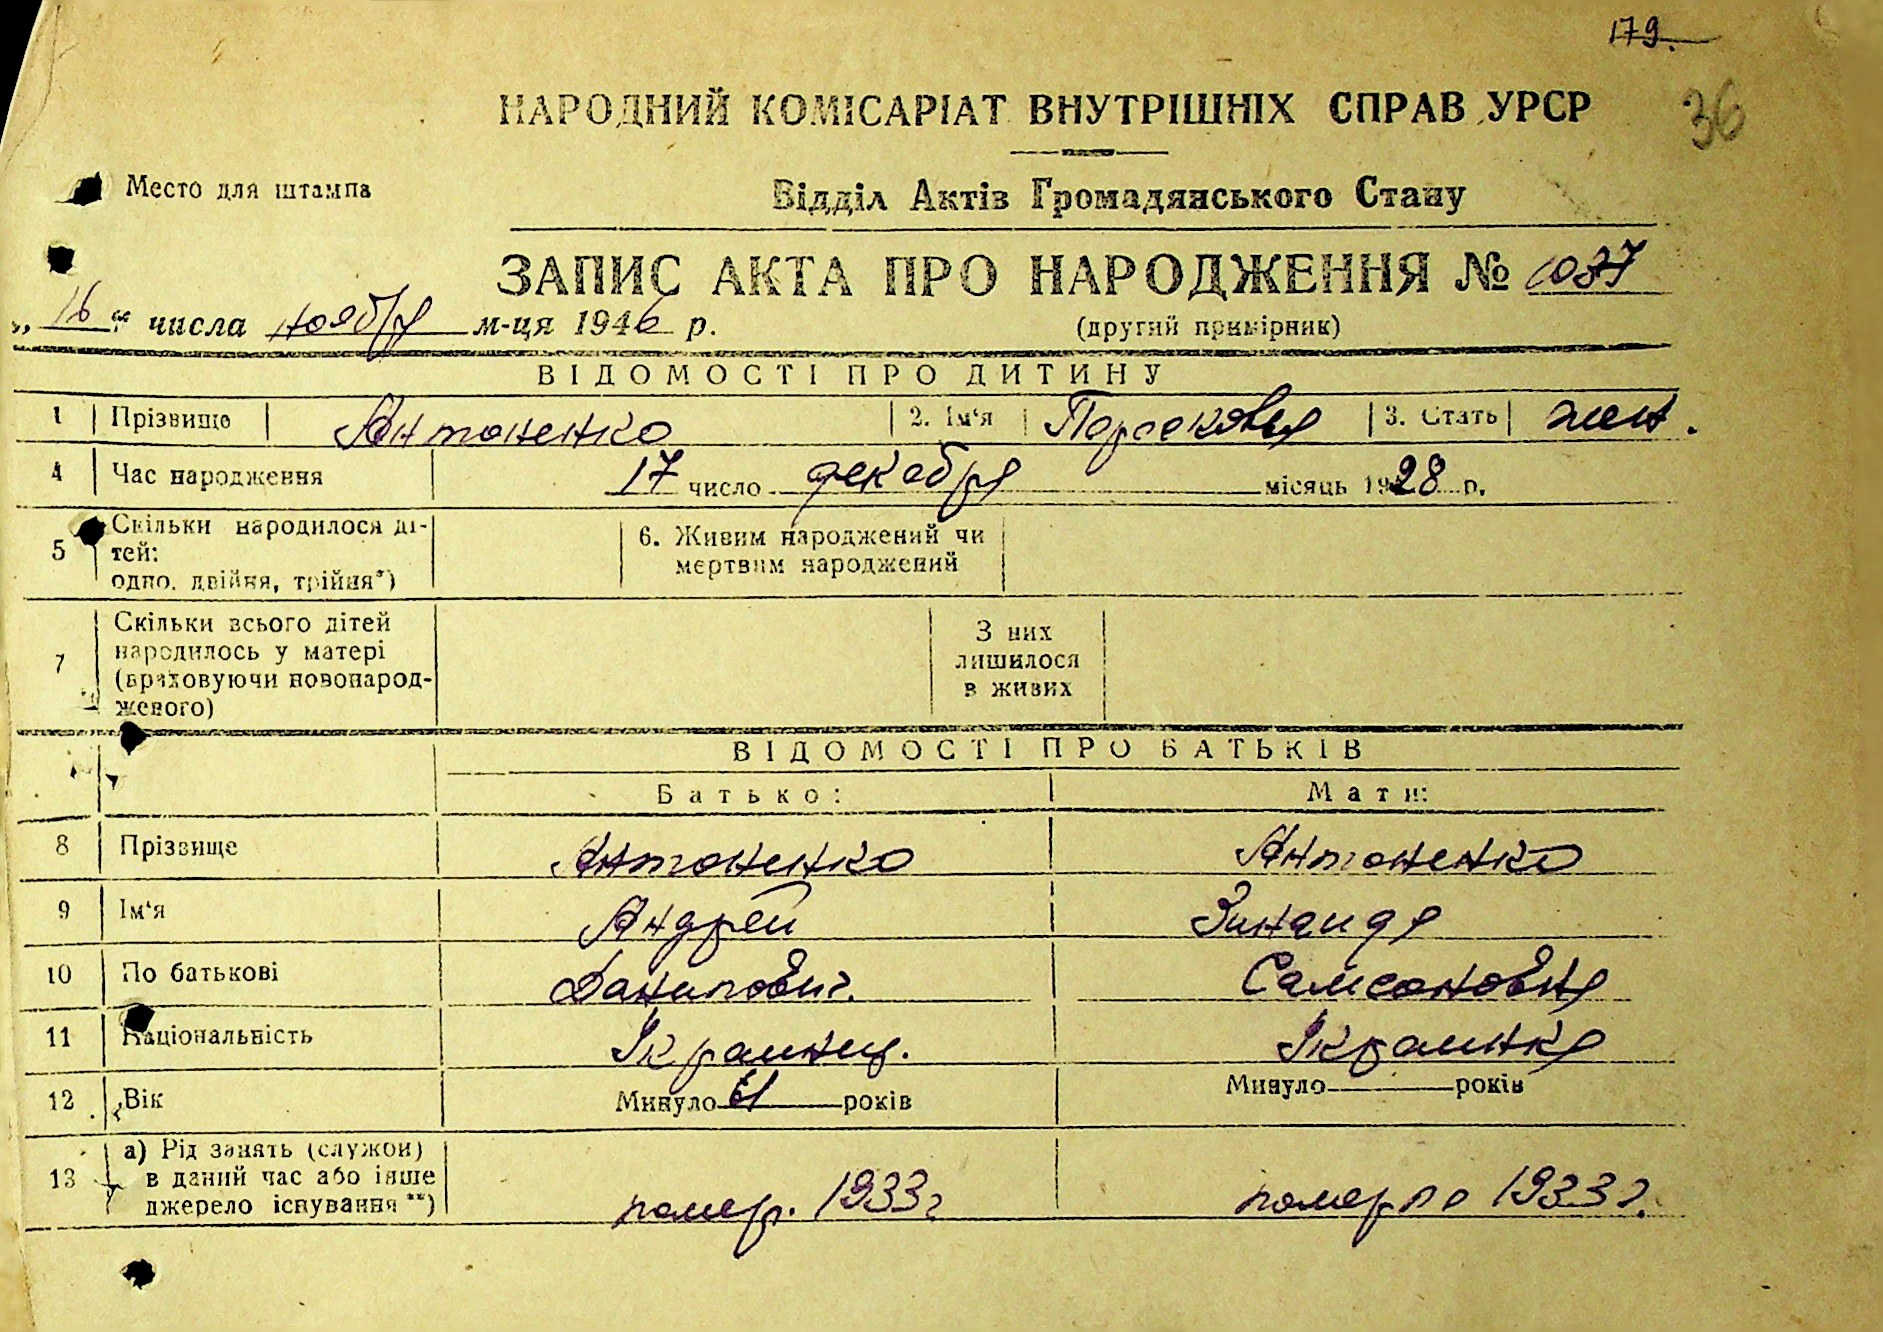 179.
НАРОДНИЙ КОМІСАРІАТ ВНУТРІШНІХ СПРАВ УРСР
36
Место для штампа
Відділ Актів Громадянського Стану
ЗАПИС АКТА ПРО НАРОДЖЕННЯ № 1037
„16" числа ноября м-ця 1946 р.
(другий примірник)
ВІДОМОСТІ ПРО ДИТИНУ
1 Прізвище Антоненко 2. Ім'я Парасковья 3. Стать жен.
4 Час народження 17 число декабря місяць 1928 р.
5 Скільки народилося ді-
тей:
одно, двійня, трійня*)
6. Живим народжений чи
мертвим народжений
7 Скільки всього дітей
народилось у матері
(враховуючи новонарод-
женого)
З них
лишилося
в живих
ВІДОМОСТІ ПРО БАТЬКІВ
Батько: Мати:
8 Прізвище Антоненко Антоненко
9 Ім'я Андрей Зинаида
10 По батькові Данилович. Самсоновна
11 Національність Украинец. Украинка
12 Вік Минуло 61 років Минуло років
13 а) Рід занять (служби)
в даний час або інше
джерело існування **)
помер. 1933г померла 1933г.